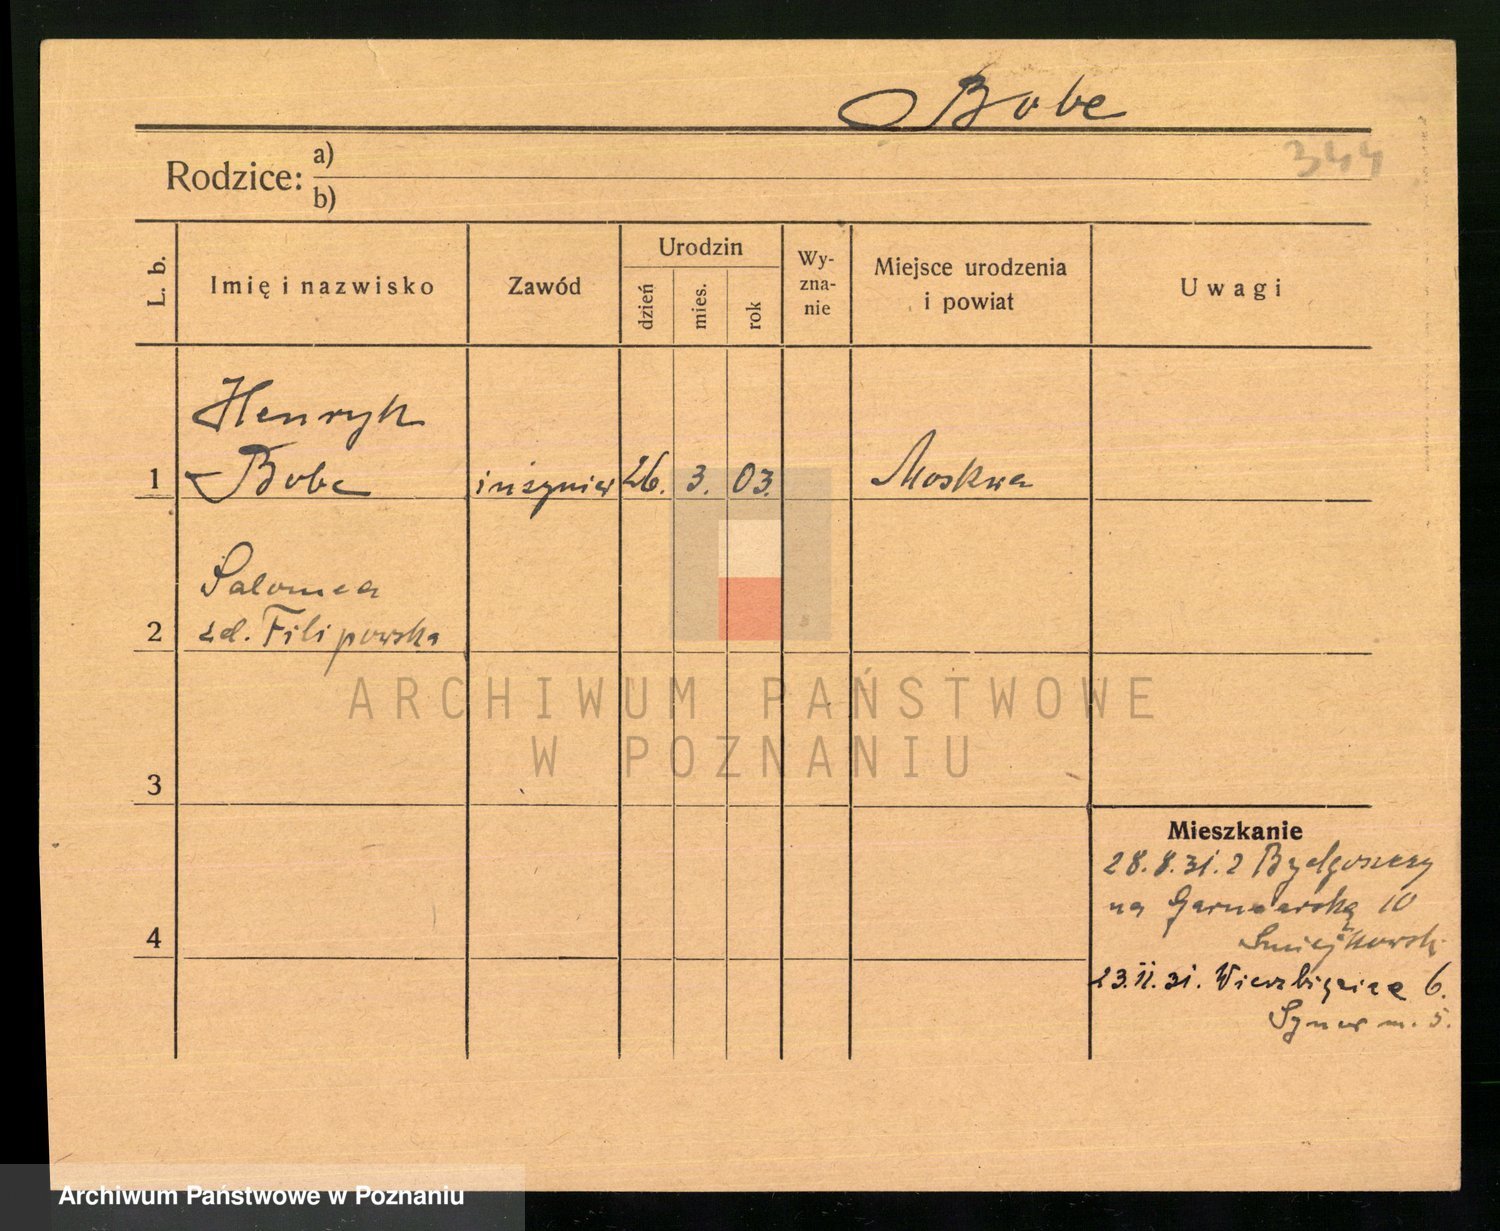 Bobe
344
Rodzice: a)
b)
L. b.
Imię i nazwisko
Zawód
Urodzin
dzień
mies.
rok
Wy-
zna-
nie
Miejsce urodzenia
i powiat
Uwagi
Henryk
1 Bobe inżynier 26. 3. 03. Moskwa
Salomea
2 zd. Filipowska
ARCHIWUM PAŃSTWOWE
W POZNANIU
3
Mieszkanie
28.8.31. z Bydgoszczy
na Garncarską 10
4
23.11.31. Wierzbięcice 6.
m. 5.
Archiwum Państwowe w Poznaniu